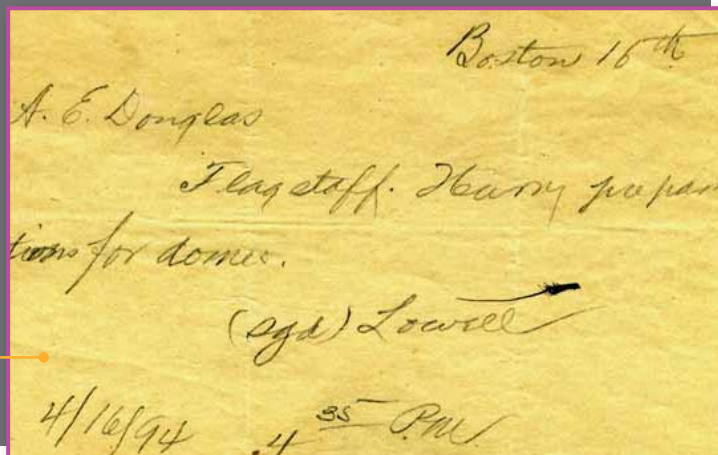 Boston 16th
A. E. Douglas
Flagstaff. Hurry prepara
tions for domes.
(sgd) Lowell
4/16/94 4 35 P.M.